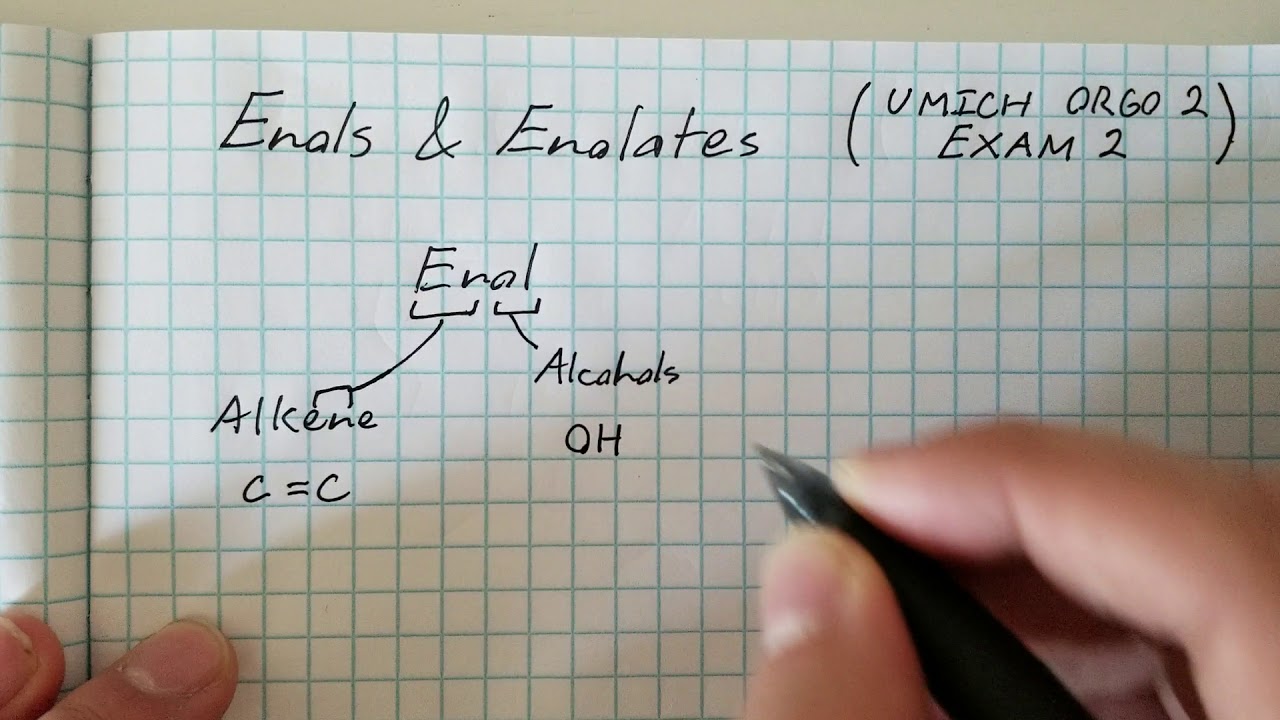 Enols & Enolates
(UMICH ORGO 2
EXAM 2)
Enol
Alcohols
Alkene
OH
C=C